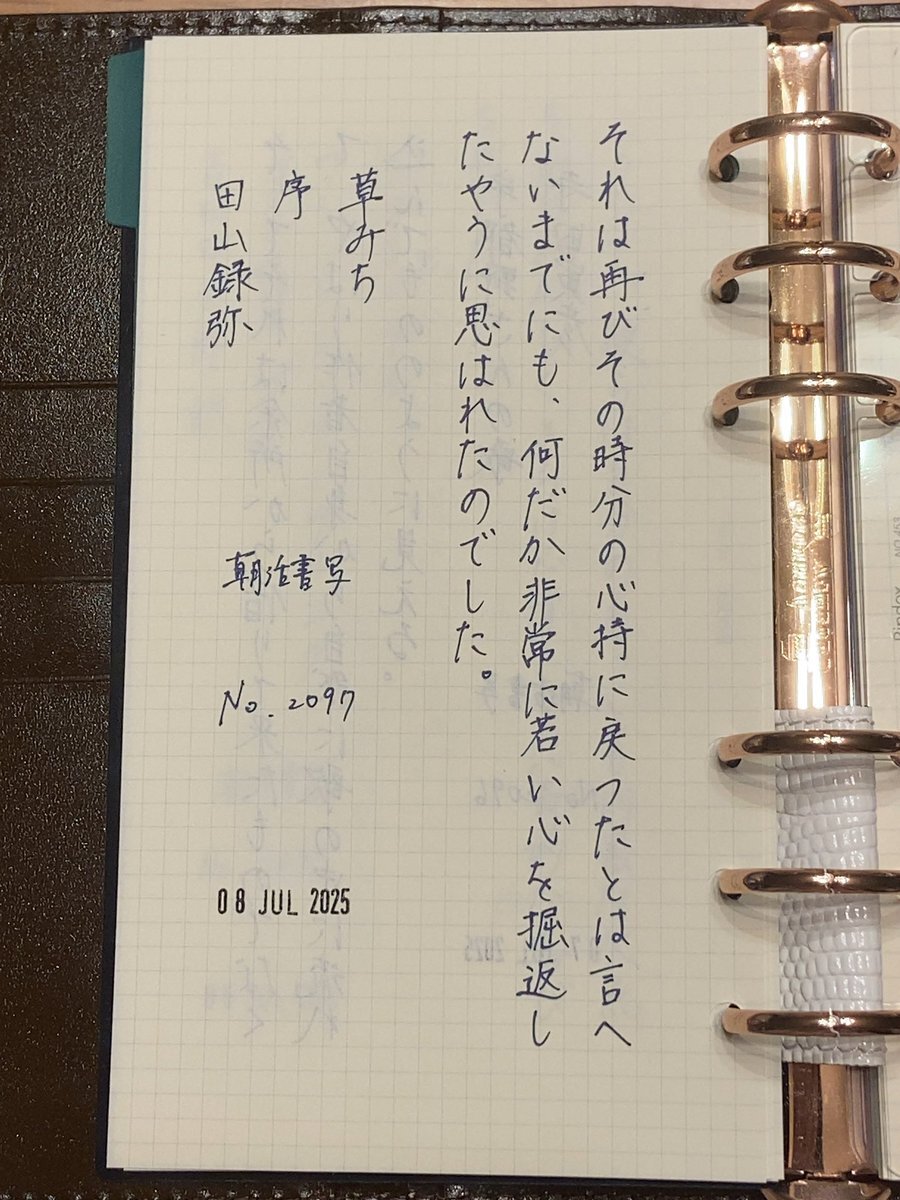 それは再びその時分の心持に戻つたとは言へ
ないまでにも、何だか非常に若い心を掘返し
たやうに思はれたのでした。
草みち
序
田山録弥
朝活書写
No. 2097
08 JUL 2025